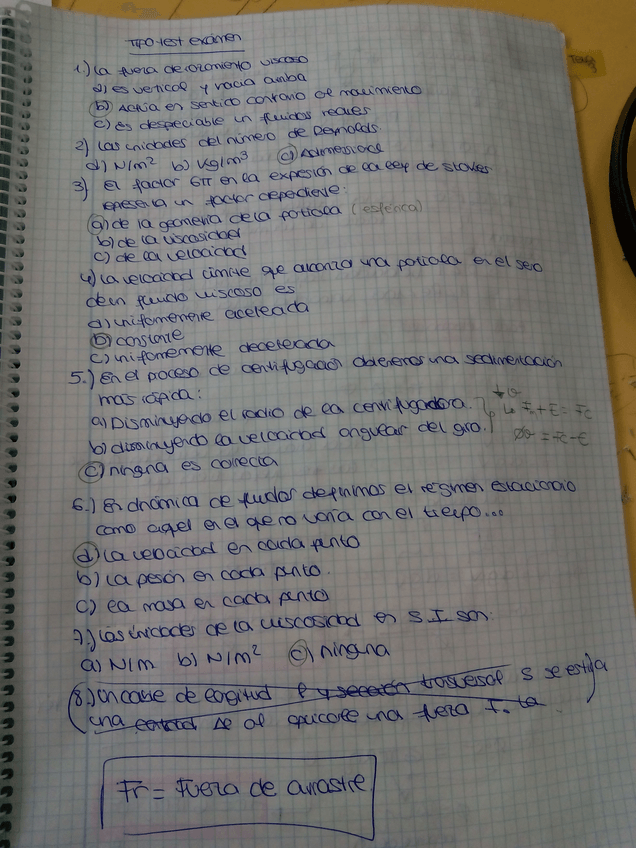 TIPO test examen
1.) La fuera de rozamiento viscoso
a) es vertical y hacia arriba
b) Actúa en sentido contrario al movimiento
c) es despreciable en fluidos reales
2) Las unidades del número de Reynolds
a) N/m² b) Kg/m³ c) Adimensional
3) El factor 6π en la expresión de la ley de Stokes
representa un factor dependiente:
a) de la geometría de la partícula (esférica)
b) de la viscosidad
c) de la velocidad
4) La velocidad límite que alcanza una partícula en el seno
de un fluido viscoso es
a) uniformemente acelerada
b) constante
c) uniformemente decelerada
5.) En el proceso de centrifugación obtenemos una sedimentación
más rápida:
a) Disminuyendo el radio de la centrifugadora.
b) disminuyendo la velocidad angular del giro.
c) ninguna es correcta
6.) En dinámica de fluidos definimos el régimen estacionario
como aquel en el que no varía con el tiempo...
a) La velocidad en cada punto
b) La presión en cada punto.
c) la masa en cada punto
7.) Las unidades de la viscosidad en S.I son:
a) N/m b) N/m² c) ninguna
8.) Un cable de longitud l y sección trasversal S se estira
una Δl al aplicarle una fuerza F. la
Fr = Fuerza de arrastre